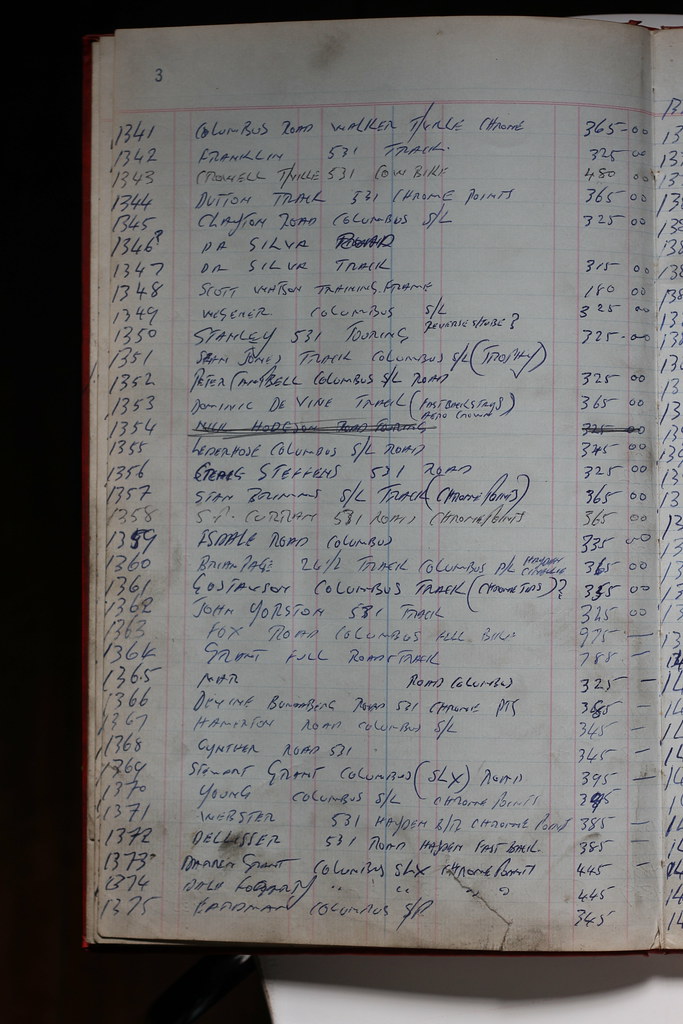 3
1341 COLUMBUS ROAD WALKER T/VILLE CHROME 365-00
1342 FRANKLIN 531 TRACK. 325 00
1343 CROWELL T/VILLE 531 LOW BIKE 480 00
1344 DUTTON TRACK 531 CHROME POINTS 365 00
1345 CLAYTON ROAD COLUMBUS S/L 325 00
1346? DA SILVA ROAD
1347 DA SILVA TRACK 315 00
1348 SCOTT WATSON TRAINING FRAME 180 00
1349 WEGENER COLUMBUS S/L 325 00
1350 STANLEY 531 TOURING 325-00
1351 SEAN JONES TRACK COLUMBUS S/L (TROPHY)
1352 PETER CAMPBELL COLUMBUS S/L ROAD 325 00
1353 DOMINIC DE VINE TRACK (FASTBACK STAYS 365 00
AERO CROWN)
1354 NICK HODGSON ROAD TOURING 325 00
1355 LEDERHOSE COLUMBUS S/L ROAD 345 00
1356 STEFFENS 531 ROAD 325 00
1357 STAN S/L TRACK (CHROME POINTS) 365 00
1358 CURRAN 531 ROAD CHROME POINTS 365 00
1359 ESDALE ROAD COLUMBUS 335 00
1360 BRIAN PAGE TRACK COLUMBUS HAYDEN 365 00
1361 GUSTAVSON COLUMBUS TRACK (CHROME )? 00
1362 JOHN YORSTON 531 TRACK 325 00
1363 FOX ROAD COLUMBUS FULL BIKE 975 —
1364 GRANT FULL ROAD TRACK 788 —
1365 MAR ROAD COLUMBUS 325 —
1366 DEVINE BUNDABERG ROAD 531 CHROME PTS 365 —
1367 HAMERTON ROAD COLUMBUS S/L 345 —
1368 GYNTHER ROAD 531 345 —
1369 STEWART GRANT COLUMBUS (SLX) ROAD 395 —
1370 YOUNG COLUMBUS S/L CHROME POINTS
1371 WEBSTER 531 HAYDEN CHROME POINT 385 —
1372 DELLISSER 531 ROAD HAYDEN FAST BACK 385 —
1373 DARREN GRANT COLUMBUS SLX CHROME POINTS 445 —
1374 DALE FOGARTY " " " " 445
1375 HARDMAN COLUMBUS 345